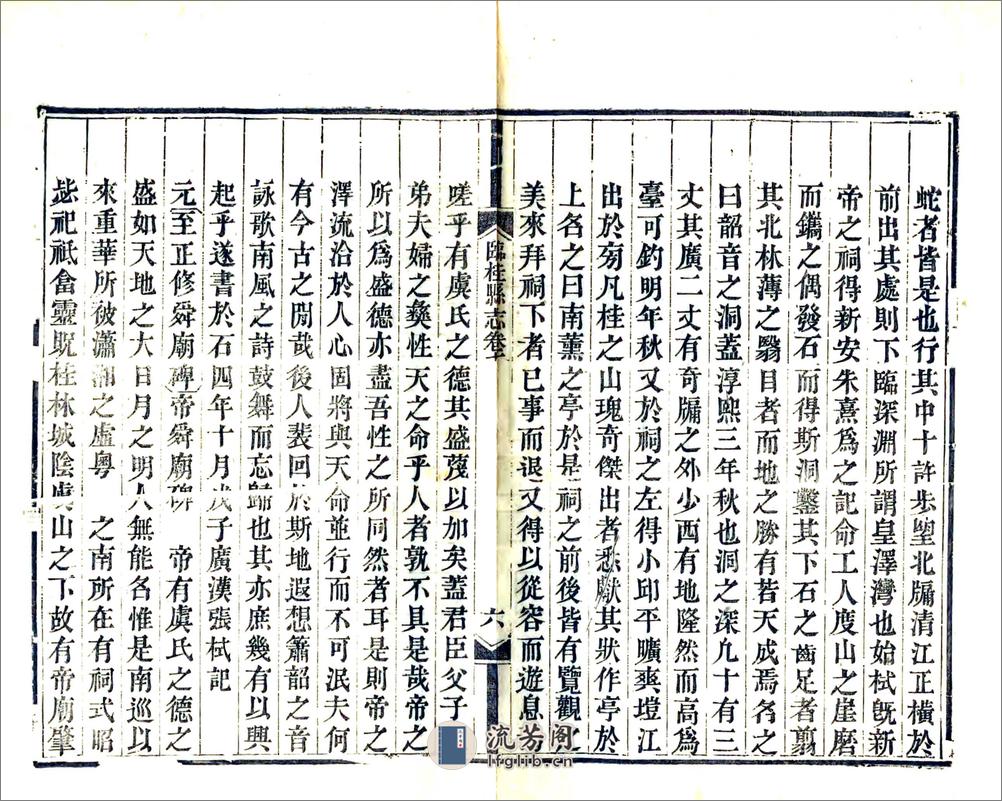 蛇者皆是也行其中十許步望北牖清江正橫於
前出其處則下臨深淵所謂皇澤灣也始栻旣新
帝之祠得新安朱熹爲之記命工人度山之崖磨
而鑴之偶發石而得斯洞鑿其下石之齒足者翦
其北林薄之翳目者而地之勝有若天成焉名之
曰韶音之洞蓋淳熙三年秋也洞之深九十有三
丈其廣二丈有奇牖之外少西有地隆然而高爲
臺可釣明年秋又於祠之左得小邱平曠爽塏江
出於旁凡桂之山瑰奇傑出者悉獻其狀作亭於
上名之曰南薰之亭於是祠之前後皆有覽觀之
美來拜祠下者已事而退又得以從容而遊息
臨桂縣志卷
六
嗟乎有虞氏之德其盛蔑以加矣蓋君臣父子
弟夫婦之彝性天之命乎人者孰不具是哉帝之
所以爲盛德亦盡吾性之所同然者耳是則帝之
澤流洽於人心固將與天命並行而不可泯夫何
有今古之閒哉後人裴回於斯地遐想簫韶之音
詠歌南風之詩鼓舞而忘歸也其亦庶幾有以興
起乎遂書於石四年十月戊子廣漢張栻記
元至正修舜廟碑帝舜廟碑 帝有虞氏之德之
盛如天地之大日月之明人無能名惟是南巡以
來重華所彼瀟湘之虛粵 之南所在有祠式昭
毖祀祗畣靈貺桂林城陰虞山之下故有帝廟肇
流芳阁
lfglib.cn